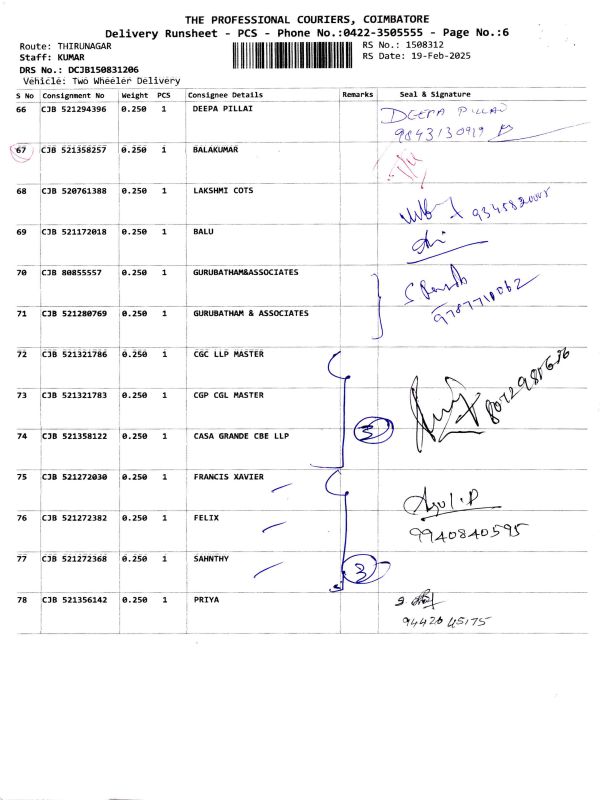 THE PROFESSIONAL COURIERS, COIMBATORE
Delivery Runsheet - PCS - Phone No.:0422-3505555 - Page No.:6
Route: THIRUNAGAR
RS No.: 1508312
Staff: KUMAR
RS Date: 19-Feb-2025
DRS No.: DCJB150831206
Vehicle: Two Wheeler Delivery
S No Consignment No Weight PCS Consignee Details Remarks Seal & Signature
66 CJB 521294396 0.250 1 DEEPA PILLAI DEEPA PILLAI
9843130919
67 CJB 521358257 0.250 1 BALAKUMAR
68 CJB 520761388 0.250 1 LAKSHMI COTS
69 CJB 521172018 0.250 1 BALU
70 CJB 80855557 0.250 1 GURUBATHAM&ASSOCIATES
71 CJB 521280769 0.250 1 GURUBATHAM & ASSOCIATES
72 CJB 521321786 0.250 1 CGC LLP MASTER
73 CJB 521321783 0.250 1 CGP CGL MASTER
74 CJB 521358122 0.250 1 CASA GRANDE CBE LLP 3
75 CJB 521272030 0.250 1 FRANCIS XAVIER
76 CJB 521272382 0.250 1 FELIX
9940840595
77 CJB 521272368 0.250 1 SAHNTHY 3
78 CJB 521356142 0.250 1 PRIYA
94420 45175